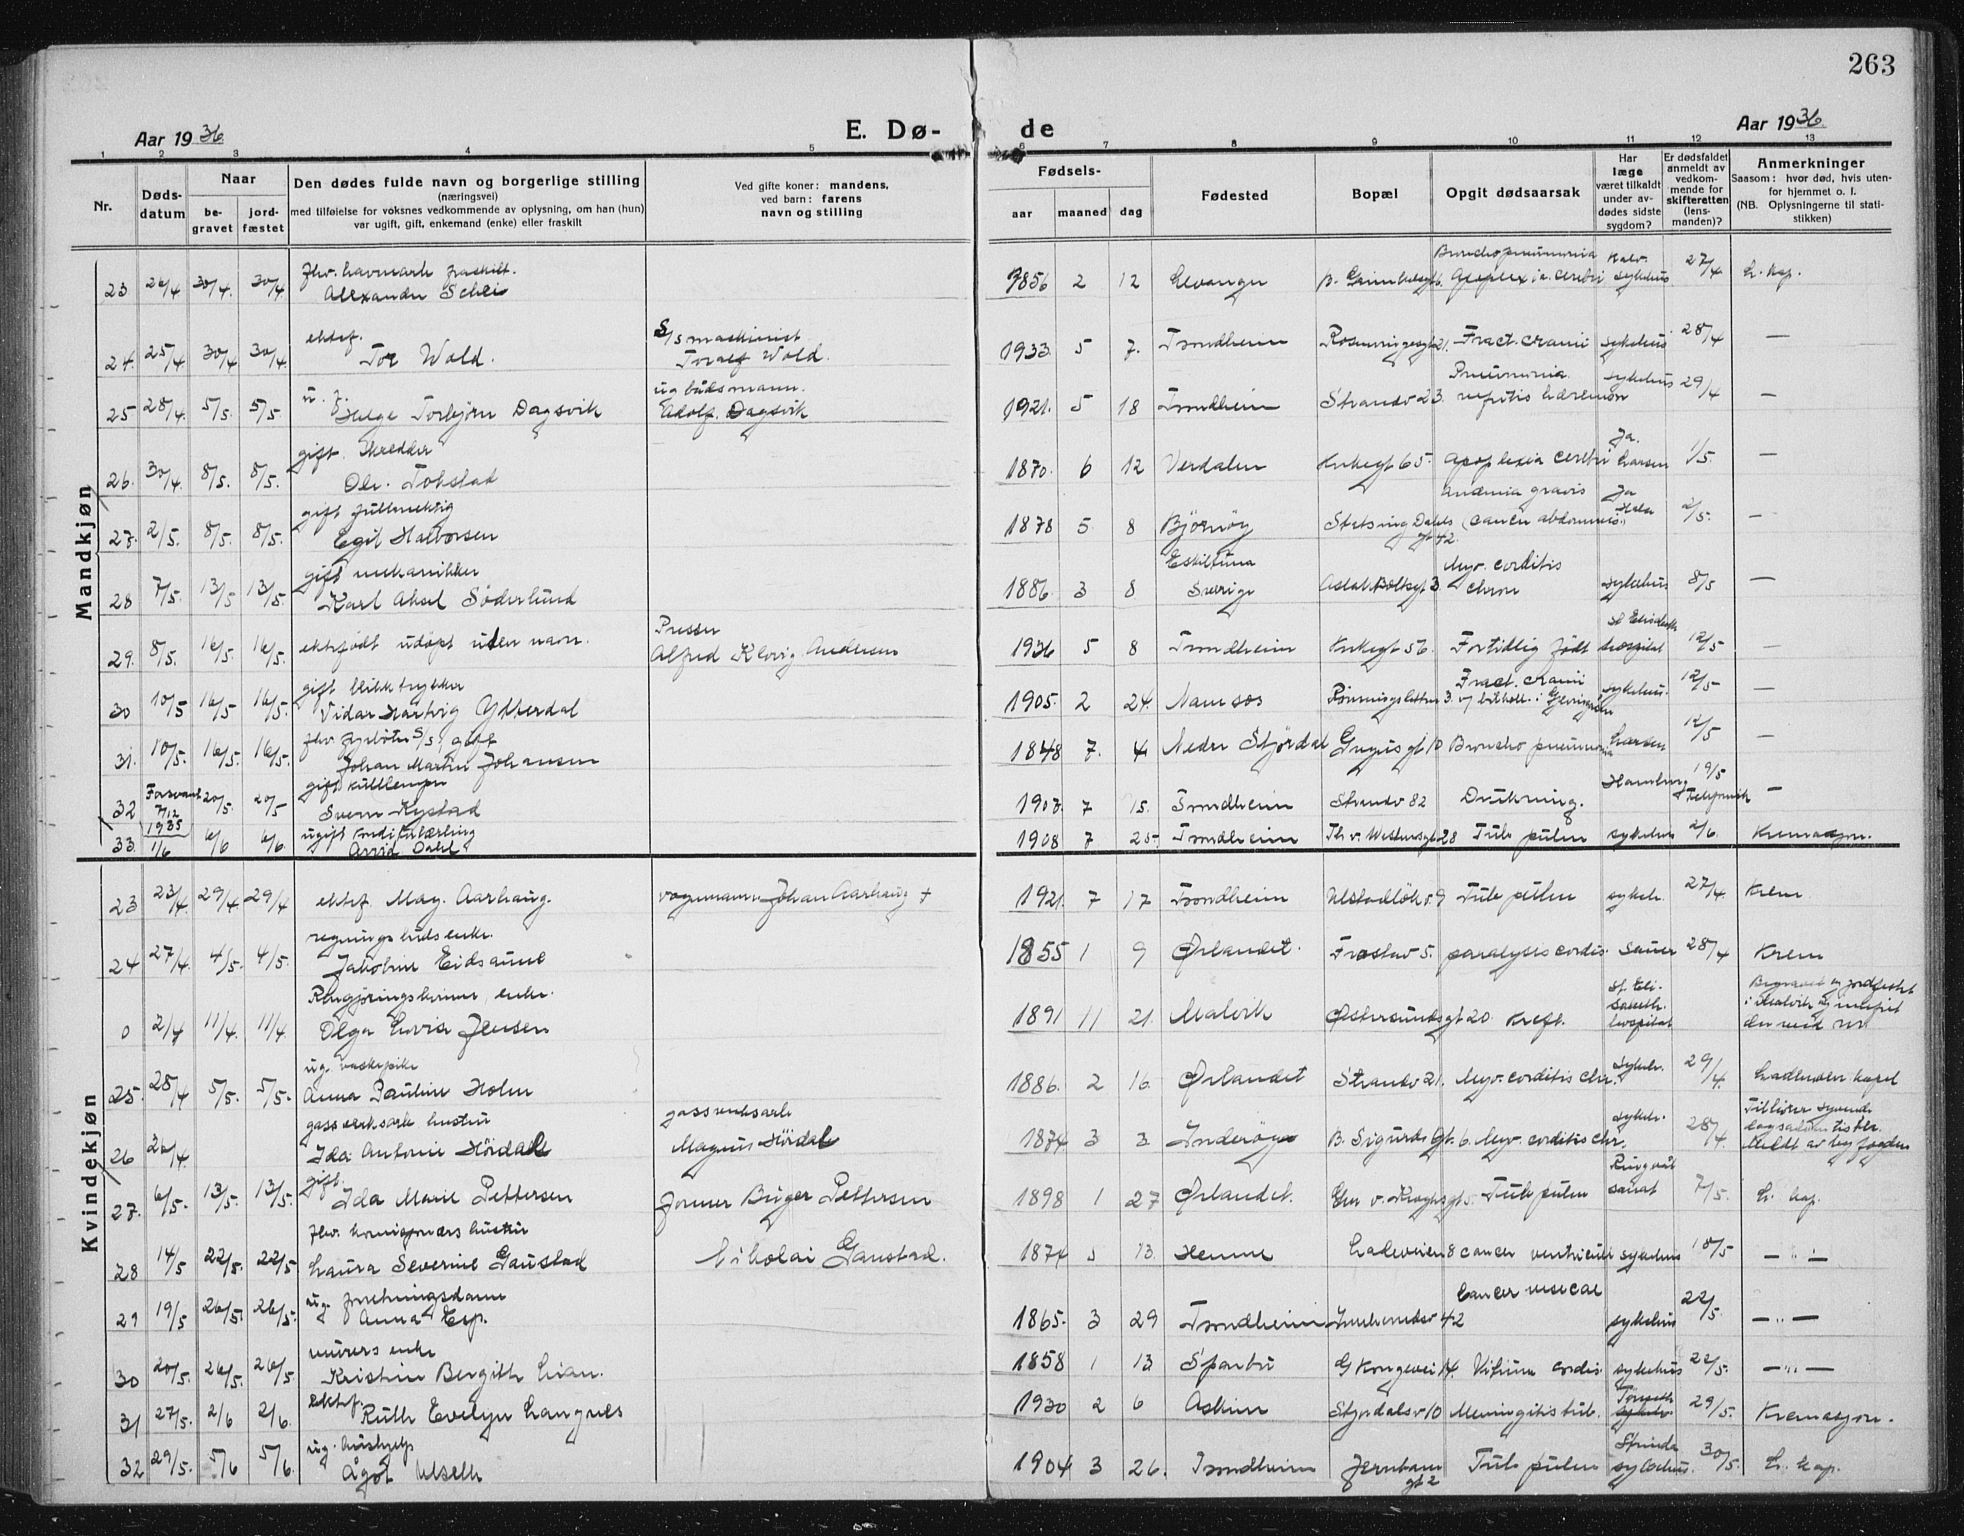 263
Aar 1936
E. Dø-
de
Aar 1936
1 2 3 4 5 6 7 8 9 10 11 12 13
Nr.
Døds-
datum
Naar
be-
gravet
jord-
fæstet
Den dødes fulde navn og borgerlige stilling
(næringsvei)
med tilføielse for voksnes vedkommende av oplysning, om han (hun)
var ugift, gift, enkemand (enke) eller fraskilt
Ved gifte koner: mandens,
ved barn: farens
navn og stilling
Fødsels-
aar maaned dag
Fødested
Bopæl
Opgit dødsaarsak
Har
læge
været tilkaldt
under av-
dødes sidste
sygdom?
Er dødsfaldet
anmeldt av
vedkom-
mende for
skifteretten
(lens-
manden)?
Anmerkninger
Saasom: hvor død, hvis uten-
for hjemmet o. l.
(NB. Oplysningerne til stati-
stikken)
Mandkjøn
23 26/4 30/4. 30/4 fhv. havnearb fraskilt.
Alexander Schei 1856 2 12 Levanger Bronchopneumonia
apoplexia cerebri sykehus 27/4 L. kap.
24. 25/4 30/4 30/4 ektef.
Tor Wold. S/S maskinist
Toralf Wold. 1933 5 7. Trondheim Fract. cranii sykehus 28/4 —
25 28/4. 5/5. 5/5
Helge Torbjørn Dagsvik ug budsmann.
Adolf Dagsvik 1921. 5 18 Trondheim Strandv 23. Pneumonia
sykehus 29/4 —
26. 30/4. 8/5. 8/5. gift. skredder
Ole Tokstad 1870. 6 12 Verdalen Kirkegt 65. apoplexia cerebri Ja.
Larsen 1/5. —
27. 2/5. 8/5. 8/5. gift
Egil Halvorsen 1878 5. 8 Bjørnøy Statsing Dahls
gt 42. Anæmia gravis
(cancer abdominis.) Ja
2/5. —
28 7/5. 13/5 13/5. gift mekaniker
Karl Aksel Söderlund 1886. 3 8 Eskiltuna
Sverige 3 Myocorditis
chron sykehus 8/5 —
29. 8/5. 16/5. 16/5. ektefødt udøpt uten navn. Presser
Alfred Klevig Andersen 1936 5 8 Trondheim Kirkegt 56. Fortidlig født St Elisabeth
hospital 12/5 —
30 10/5 16/5 16/5. gift blikktrykker
Vidar Hartvig Ytterdal 1905. 2 24. Namsos Fract. cranii
sykehus. 12/5 —
31. 10/5. 16/5. 16/5. fhv. fyrbøter S/S, gift
Johan Martin Johansen 1848 7. 4 Nedre Stjørdal 10 Broncho pneumonia Larsen 12/5 —
32 Forsvant
7/12
1935 20/5. 20/5 gift kullemper
Sverre Rystad 1907. 7 15. Trondheim Strandv 82 Drukning. Hamburg
19/5 —
33 1/6 6/6 6/6. ugift konditorlærling
Arvid Dahl 1908 7 25. Trondheim Th v. Westensgt 28 Tub pulm sykehus 2/6. Kremasjon.
Kvindekjøn
23 23/4. 29/4 29/4 ektef May. Aarhaug. vognmann Johan Aarhaug † 1921 7 17 Trondheim 9 Tub pulm sykeh. 27/4. Krem
24 27/4. 4/5. 4/5. regningsbuds enke.
Jakobine Eidsaune 1855 1 9 Ørlandet. Frostav 5. paralysis cordis. Sauer 28/4 Krem
0 2/4 11/4 11/4 Rengjøringskvinne, enke.
Olga Jensen 1891 11 21. Malvik Østersundsgt 20 Kreft. St. Eli-
sabeth.
hospital Begravet og jordfestet
i Malvik og innført
der med nr
25. 28/4 5/5. 5/5. ug. vaskepike
Anna Pauline Holm 1886. 2 16. Ørlandet Strandv 21. Myocorditis chr. sykeh. 29/4. Lademoen kapel
26 26/4. gassverksarb hustru
Ida Antonie Hördal gassverksarb
Magnus Hördal 1874 3 3. Inderøy B. Sigurds gt. 6. Myocorditis chr. sykeh. 28/4. Tilhører syvende
dagsadventister.
27. 6/5. 13/5. 13/5. gift.
Ida Marie Pettersen Former Birger Pettersen 1898 1 27 Ørlandet. 5. Tub pulm Ringvål
sanat 7/5. L. kap.
28 14/5 22/5. 22/5 hustru
Laura Severine Gaustad Nikolai Gaustad. 1874 5 13. Hemne Ladeveien 8 cancer ventriculi sykehus 18/5 — " —
29 19/5 26/5. 26/5. ug. forretningsdame
Anna Esp. 1865. 3 29 Trondheim Innherredsv 42 Cancer vesicae sykehus 22/5. — " —
30 20/5. 26/5. 26/5 murers enke
Kristine Bergitte Lian. 1858 1 13 Sparbu G Kongevei 14. Vitium cordis. sykehus 22/5. — " —
31 27/5. 2/6 2/6. ektef.
Ruth Evelyn Langnes 1930 2 6 Askim Stjørdalsv 10 Meningitis tub. 29/5. Kremasjon.
32 29/5. 5/6 5/6. ug. hushjelp
Ågot Uthelle 1904 3 26. Trondheim Jernbane
gt 2 Tub pulm Strinda
sykehus. 30/5. L. kap.